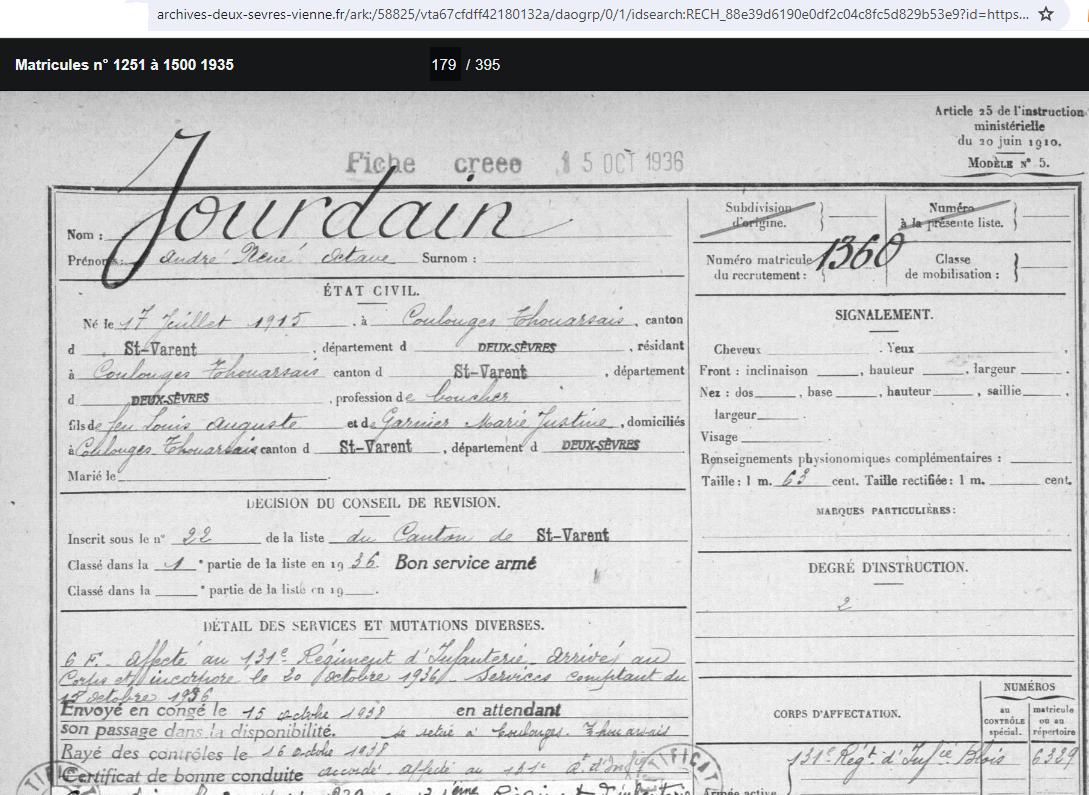 archives-deux-sevres-vienne.fr/ark:/58825/vta67cfdff42180132a/daogrp/0/1/idsearch:RECH_88e39d6190e0df2c04c8fc5d829b53e9?id=https...
Matricules n° 1251 à 1500 1935 179 / 395
Article 25 de l'instruction
ministérielle
du 20 juin 1910.
MODÈLE N° 5.
Fiche creee 15 OCT 1936
Nom : Jourdain
Prénoms : André René Octave Surnom :
ÉTAT CIVIL.
Né le 17 Juillet 1915, à Coulonges Thouarsais, canton
d St-Varent, département d DEUX-SÈVRES, résidant
à Coulonges Thouarsais canton d St-Varent, département
d DEUX-SÈVRES, profession de boucher
fils de feu Louis Auguste et de Garnier Marie Justine, domiciliés
à Coulonges Thouarsais canton d St-Varent, département d DEUX-SÈVRES
Marié le
DÉCISION DU CONSEIL DE REVISION.
Inscrit sous le n° 22 de la liste du Canton de St-Varent
Classé dans la 1 e partie de la liste en 1936. Bon service armé
Classé dans la e partie de la liste en 19 .
DÉTAIL DES SERVICES ET MUTATIONS DIVERSES.
6 F. Affecté au 131e Régiment d'Infanterie. Arrivé au
Corps et incorporé le 20 octobre 1936. Services comptant du
15 octobre 1936
Envoyé en congé le 15 octobre 1938 en attendant
son passage dans la disponibilité. se retire à Coulonges Thouarsais
Rayé des contrôles le 16 octobre 1938
Certificat de bonne conduite accordé. affecté au 131e
Subdivision
d'origine.
Numéro
à la présente liste.
Numéro matricule
du recrutement : 1360
Classe
de mobilisation :
SIGNALEMENT.
Cheveux . Yeux ,
Front : inclinaison , hauteur , largeur .
Nez : dos , base , hauteur , saillie ,
largeur .
Visage
Renseignements physionomiques complémentaires :
Taille : 1 m. 63 cent. Taille rectifiée : 1 m. cent.
MARQUES PARTICULIÈRES :
DEGRÉ D'INSTRUCTION.
2
CORPS D'AFFECTATION.
NUMÉROS
au
CONTRÔLE
spécial.
matricule
ou au
répertoire
131e Régt d'Infie Blois 6339
Armée active